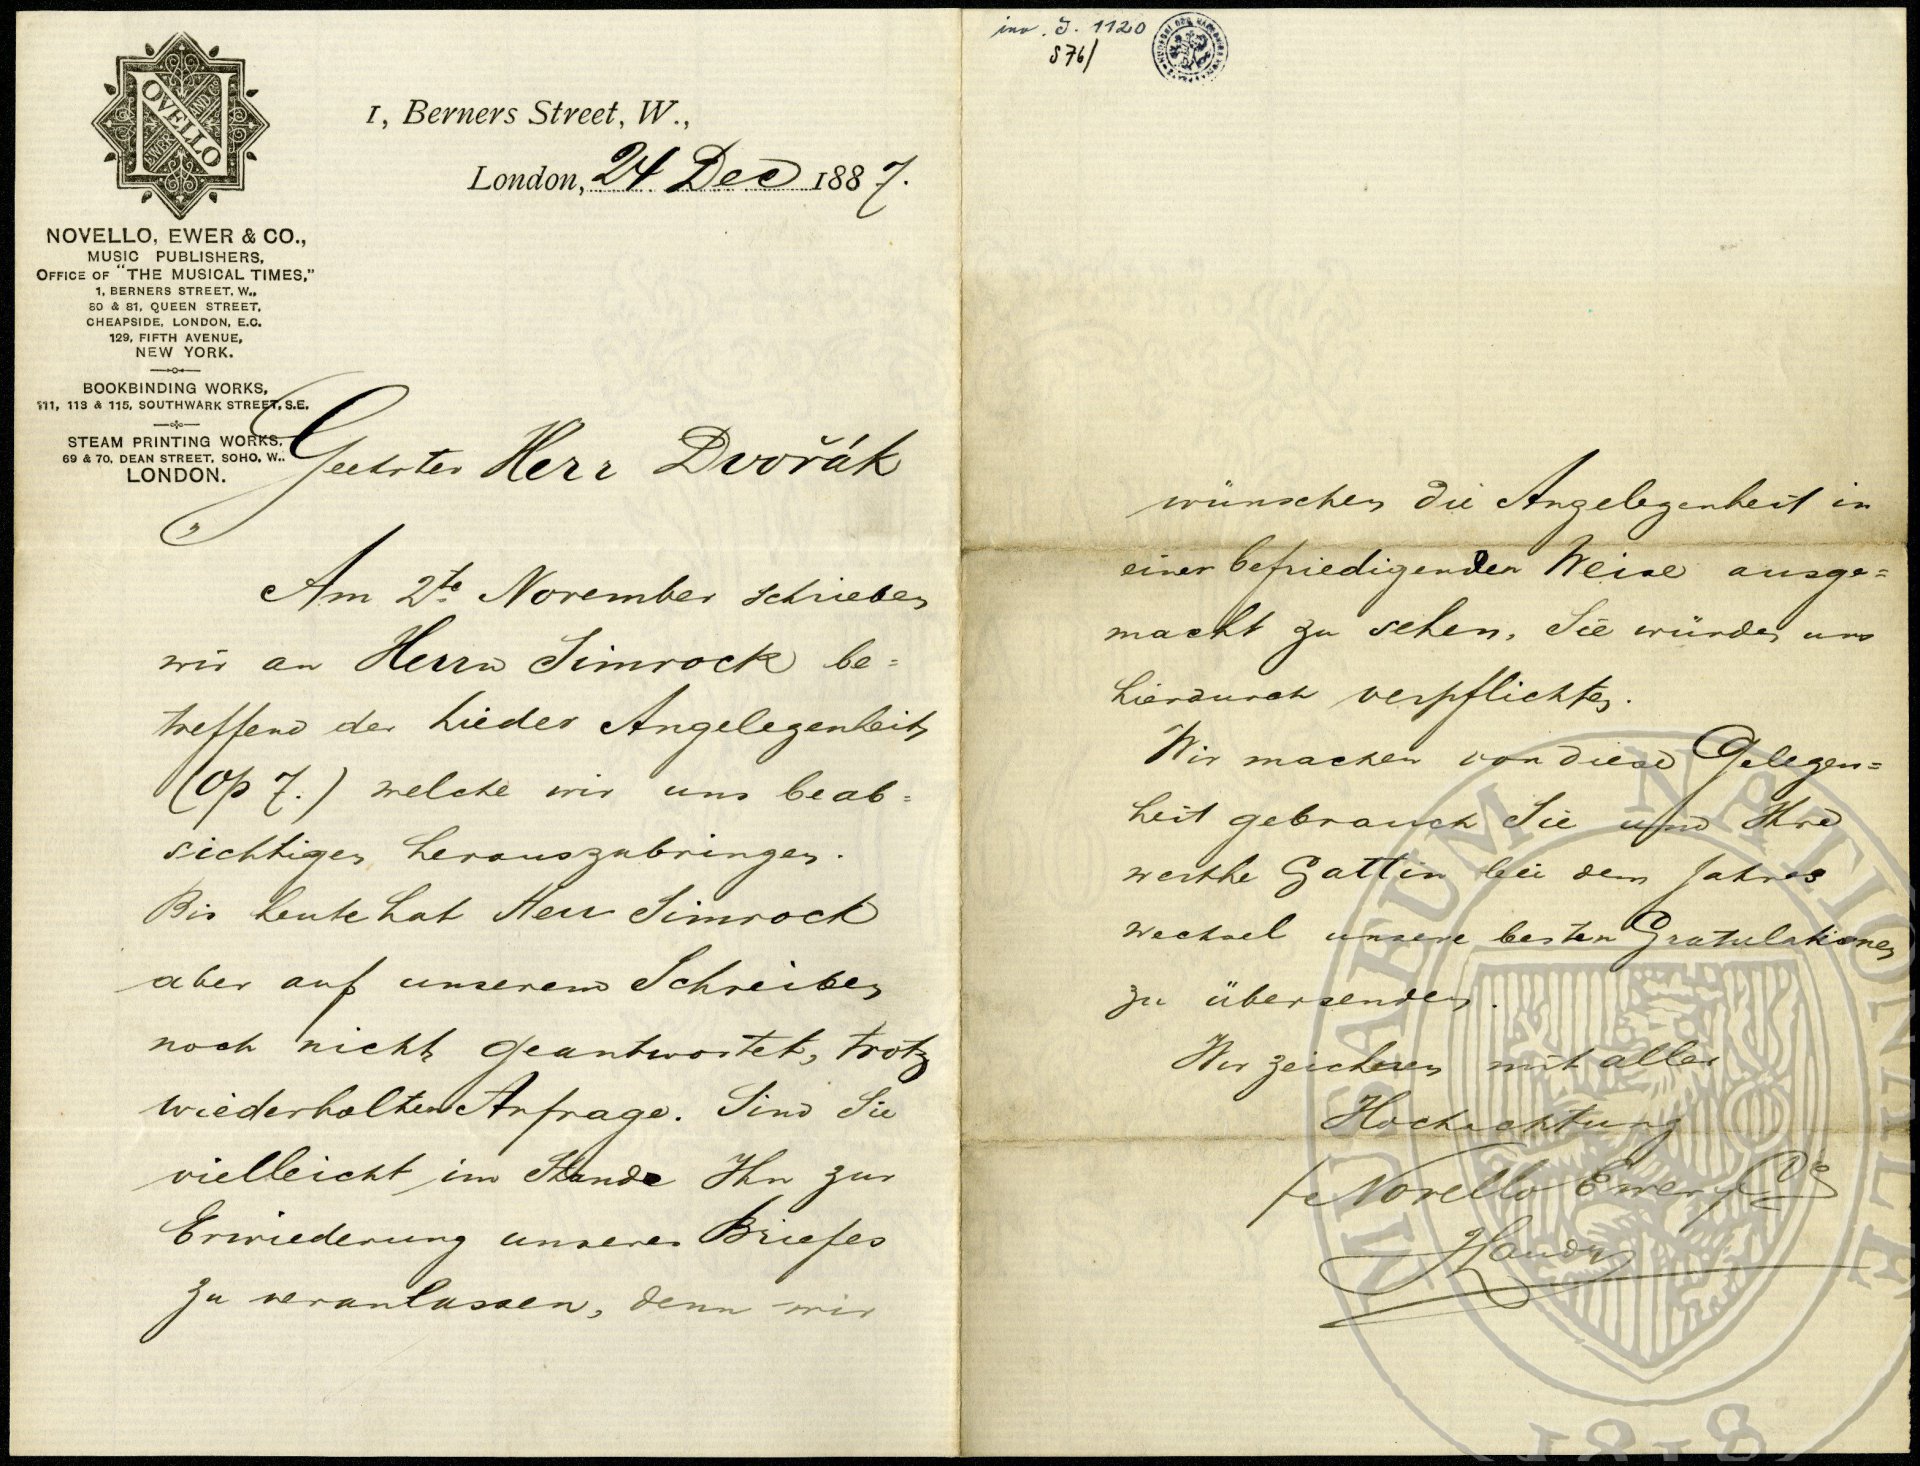 inv. J. 1120
S 76/
NOVELLO
EWER
AND
1, Berners Street, W.,
London, 24 Dec 1887.
NOVELLO, EWER & CO.,
MUSIC PUBLISHERS,
OFFICE OF "THE MUSICAL TIMES,"
1, BERNERS STREET, W.,
80 & 81, QUEEN STREET,
CHEAPSIDE, LONDON, E.C.
129, FIFTH AVENUE,
NEW YORK.
BOOKBINDING WORKS,
111, 113 & 115, SOUTHWARK STREET, S.E.
STEAM PRINTING WORKS,
69 & 70, DEAN STREET, SOHO, W.,
LONDON.
Geehrter Herr Dvořák
Am 2te November schrieben
wir an Herrn Simrock be=
treffend der Lieder Angelegenheit
(op 7.) welche wir uns beab=
sichtigen herauszubringen.
Bis heute hat Herr Simrock
aber auf unserem Schreiben
noch nicht geantwortet, trotz
wiederholten Anfrage. Sind Sie
vielleicht im Stande Ihn zur
Erwiederung unseres Briefes
zu veranlassen, denn wir
wünschen die Angelegenheit in
einer befriedigenden Weise ausge=
macht zu sehen. Sie würden uns
hierdurch verpflichten.
Wir machen von diese Gelegen=
heit gebrauch Sie und Ihre
werthe Gattin bei dem Jahres
wechsel unsere besten Gratulationen
zu übersenden.
Wir zeichnen mit aller
Hochachtung
Novello Ewer & Co
MUSAEUM NATIONALE
1818